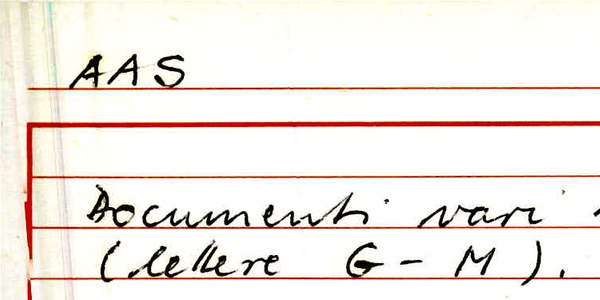 AAS
Documenti vari
(lettere G - M).